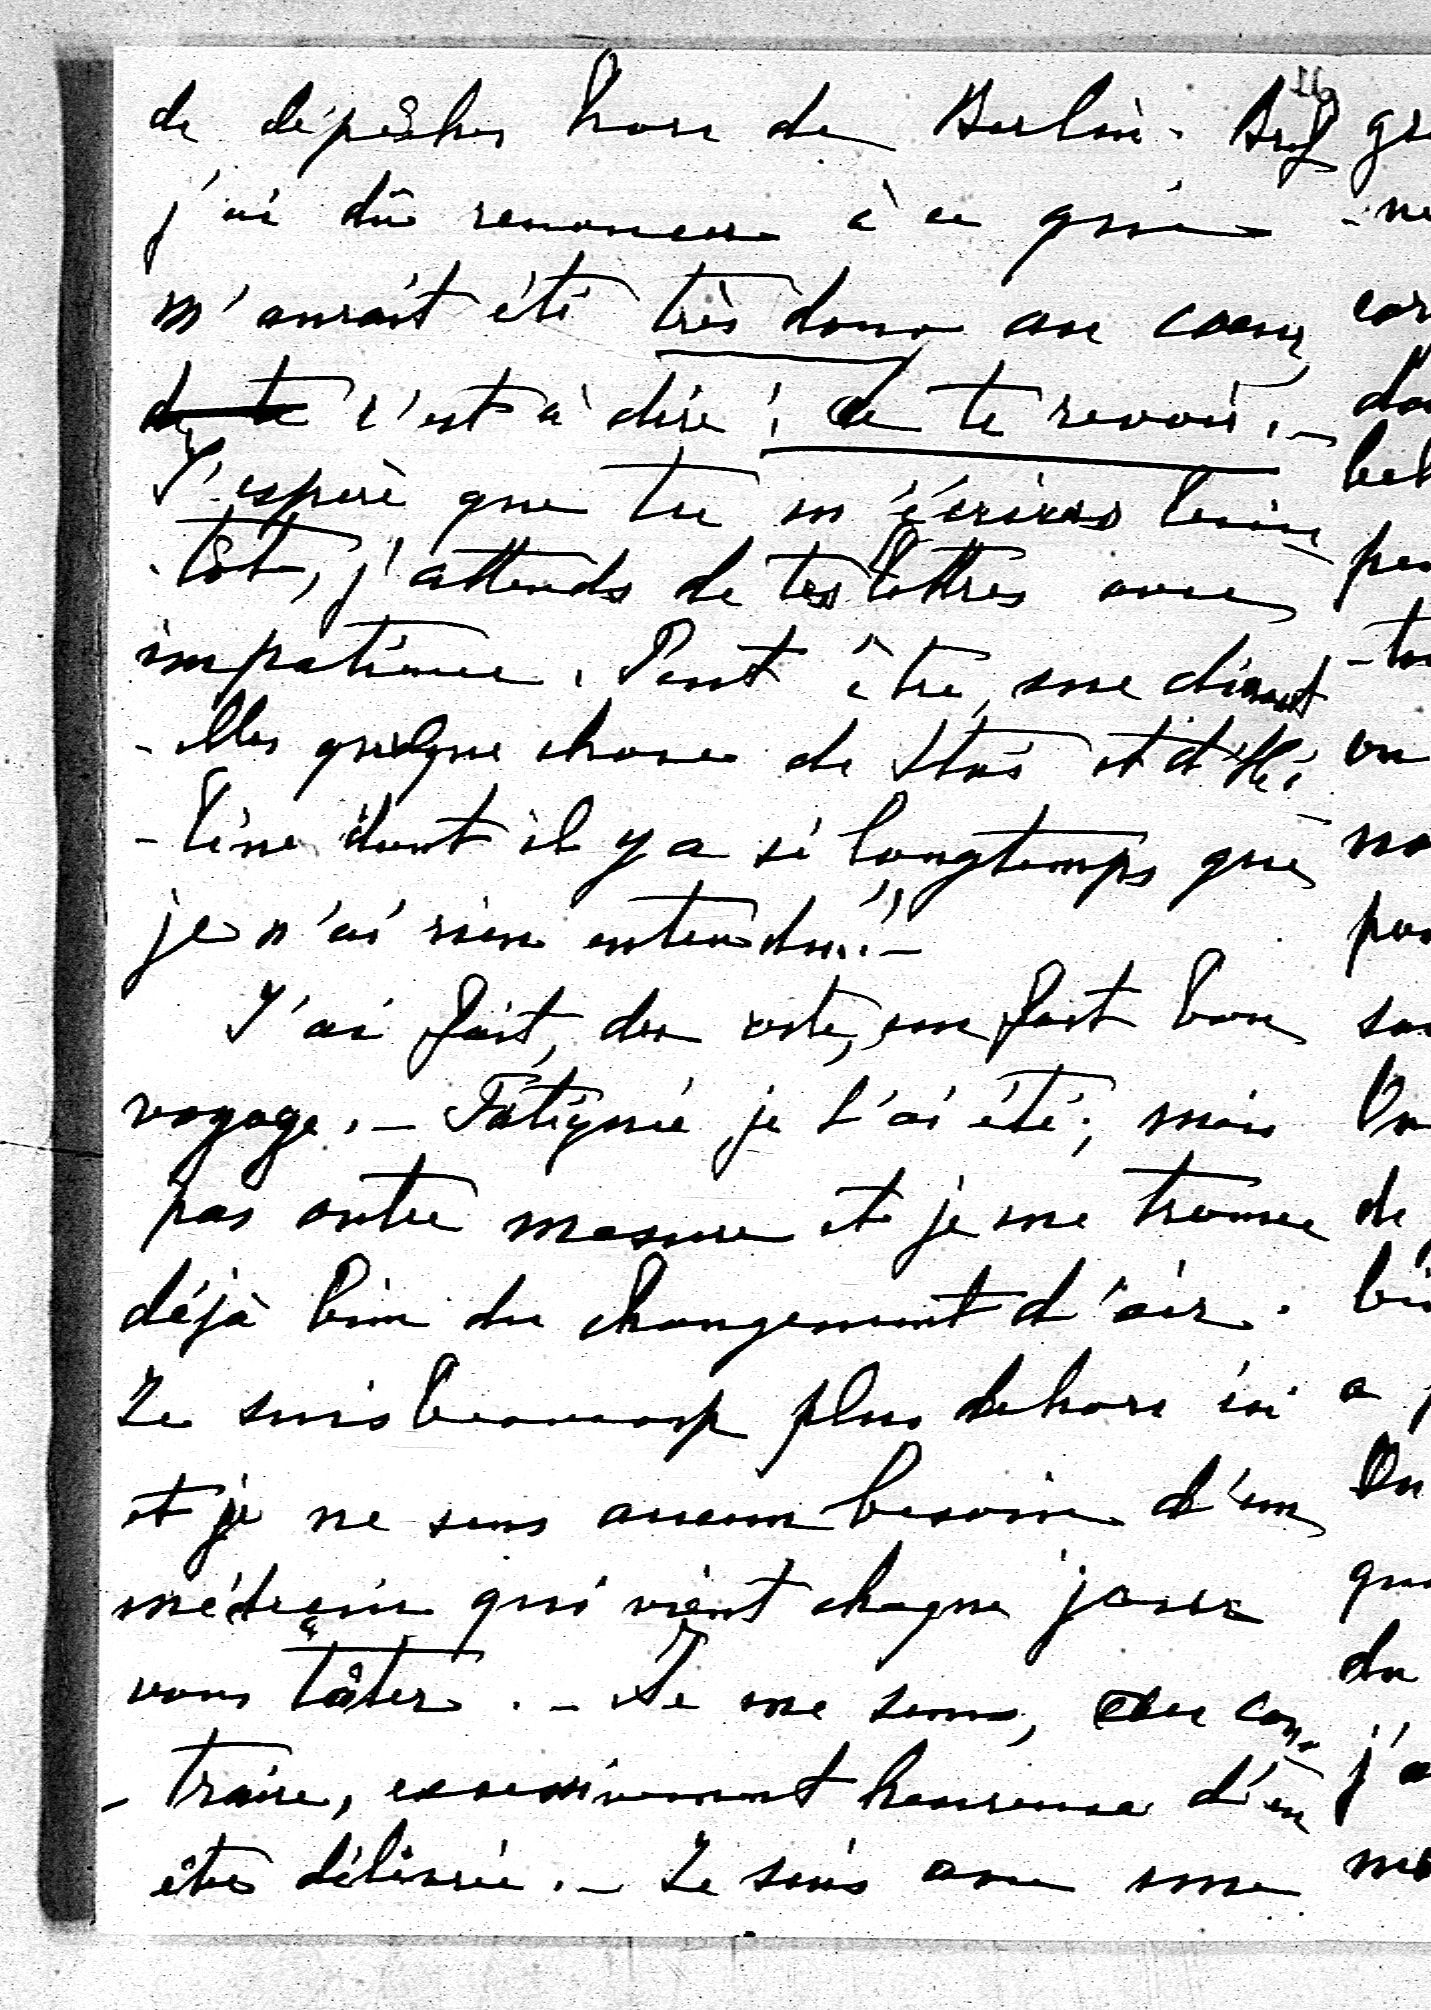 16
de dépêches hors de Berlin. Bref
j'ai dû renoncer à ce qui
m'aurait été très doux au coeur
de te c'est à dire : de te revoir. –
J'espère que tu m'écriras bien
-tôt, j'attends de tes lettres avec
impatience. Peut être me diront
-elles quelque chose de Stas et d'Hé
-lène dont il y a si longtemps que
je n'ai rien entendu! –
J'ai fait, du reste, un fort bon
voyage. – Fatiguée je l'ai été, mais
pas outre mesure et je me trouve
déjà bien du changement d'air.
Je suis beaucoup plus dehors ici
et je ne sens aucun besoin d'un
médecin qui vient chaque jour
vous tâter. – Je me sens, au con
-traire, excessivement heureuse d'en
être délivrée. – Je suis avec une